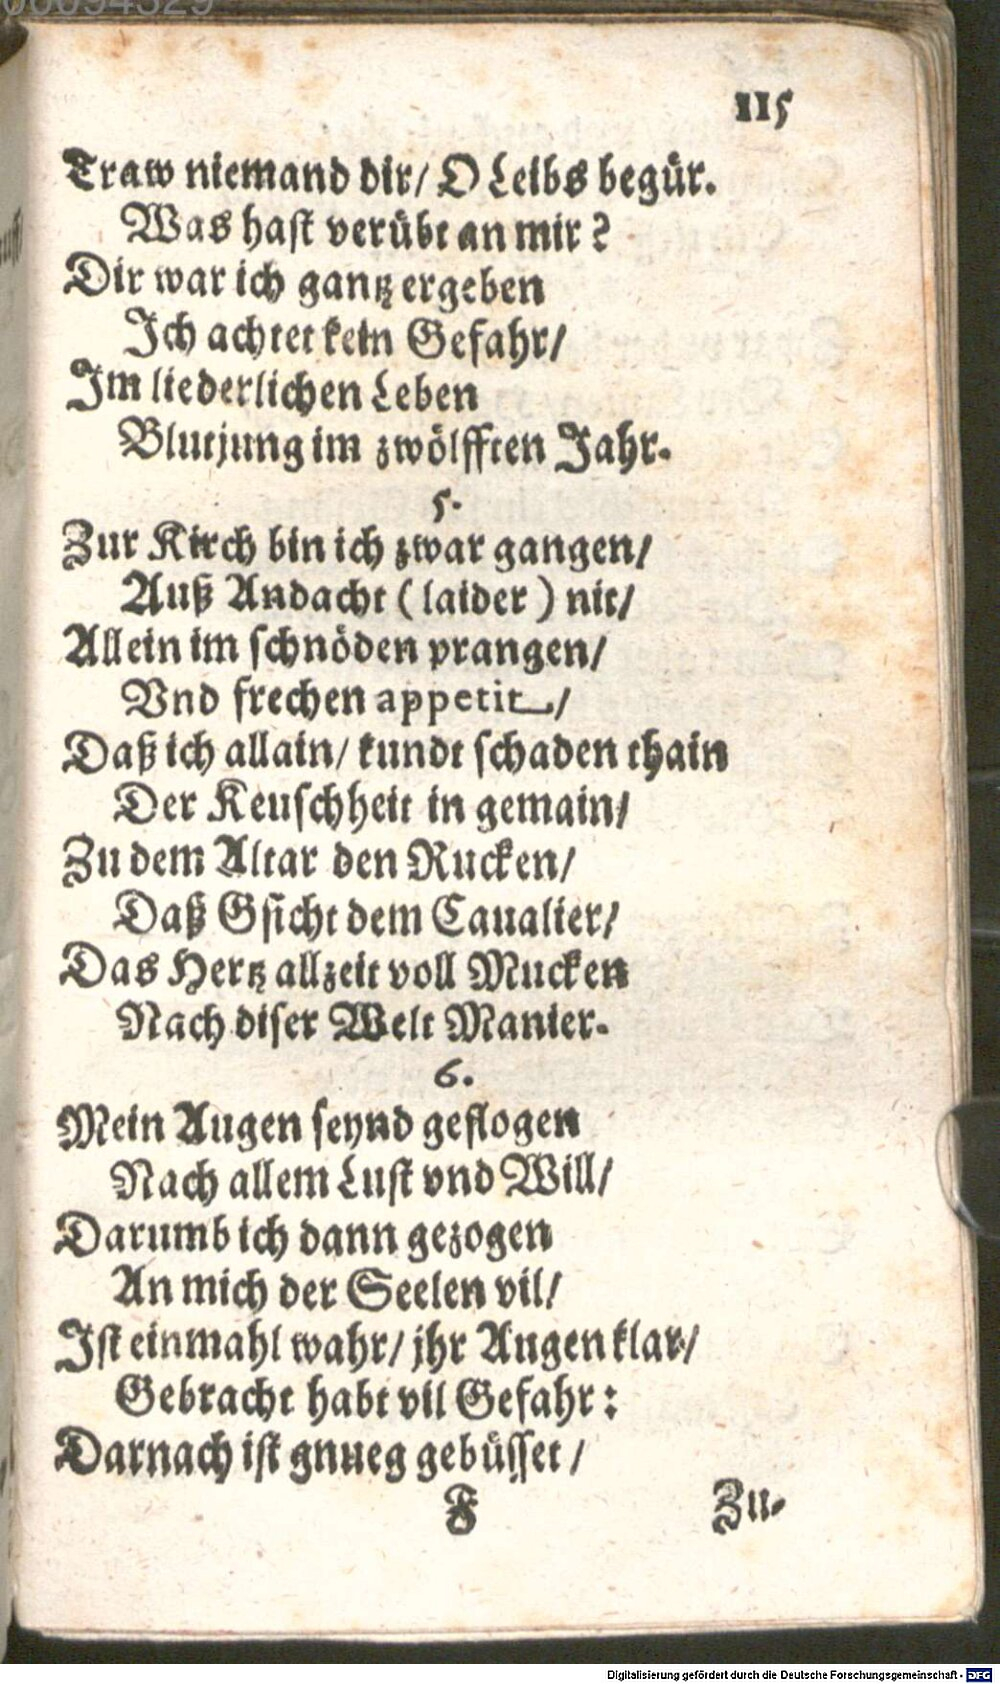 00094329
115
Traw niemand dir/ O Leibs begür.
Was hast verübt an mir?
Dir war ich gantz ergeben
Ich achtet kein Gefahr/
Im liederlichen Leben
Blutjung im zwölfften Jahr.
5.
Zur Kirch bin ich zwar gangen/
Auß Andacht (laider) nit/
Allein im schnöden prangen/
Vnd frechen appetit/
Daß ich allain/ kundt schaden thain
Der Keuschheit in gemain/
Zu dem Altar den Rucken/
Daß Gsicht dem Caualier/
Das Hertz allzeit voll Mucken
Nach diser Welt Manier.
6.
Mein Augen seynd geflogen
Nach allem Lust vnd Will/
Darumb ich dann gezogen
An mich der Seelen vil/
Ist einmahl wahr/ jhr Augen klar/
Gebracht habt vil Gefahr:
Darnach ist gnueg gebüsset/
F Zu-
Digitalisierung gefördert durch die Deutsche Forschungsgemeinschaft - DFG